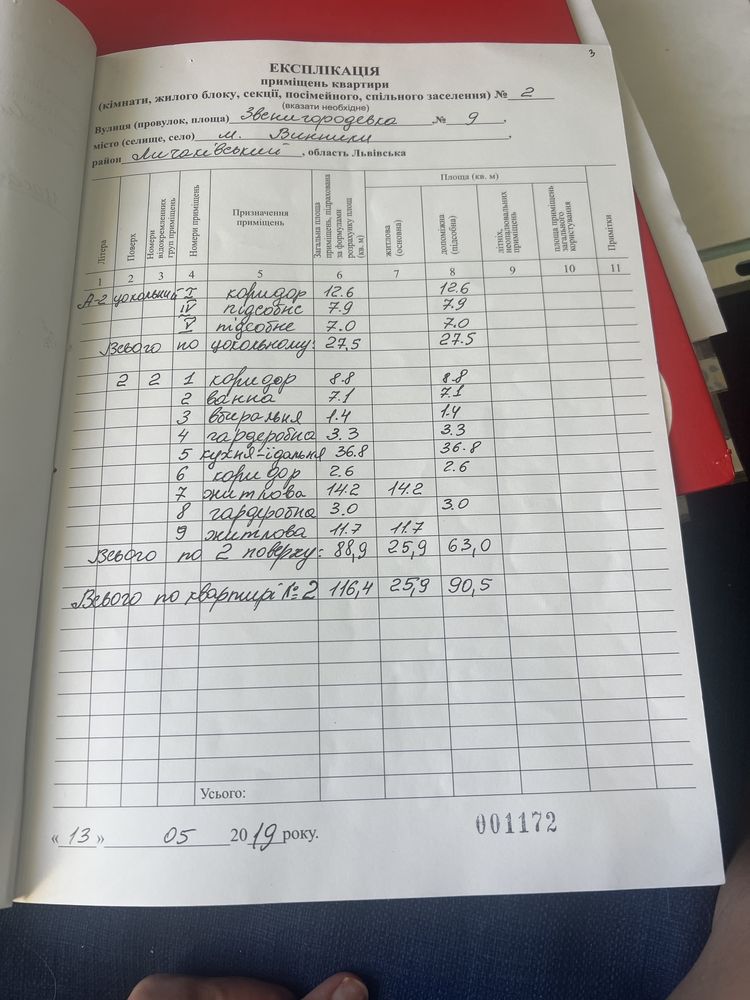 3
ЕКСПЛІКАЦІЯ
приміщень квартири
(кімнати, жилого блоку, секції, посімейного, спільного заселення) № 2
(вказати необхідне)
Вулиця (провулок, площа) Звенигородська № 9,
місто (селище, село) м. Винники,
район Личаківський, область Львівська
Літера Поверх Номери відокремленних груп приміщень Номери приміщень Призначення приміщень Загальна площа приміщень, підрахована за формулами розрахунку площ (кв. м) Площа (кв. м) житлова (основна) допоміжна (підсобна) літніх, неопалювальних приміщень площа приміщень загального користування Примітки
1 2 3 4 5 6 7 8 9 10 11
А-2 цокольний I коридор 12.6 12.6
IV підсобне 7.9 7.9
V підсобне 7.0 7.0
Всього по цокольному: 27,5 27.5
2 2 1 коридор 8.8 8.8
2 ванна 7.1 7.1
3 вбиральня 1.4 1.4
4 гардеробна 3.3 3.3
5 кухня-їдальня 36.8 36.8
6 коридор 2.6 2.6
7 житлова 14.2 14.2
8 гардеробна 3.0 3.0
9 житлова 11.7 11.7
Всього по 2 поверху: 88,9 25,9 63,0
Всього по квартирі №2 116,4 25,9 90,5
Усього:
« 13 » 05 2019 року.
001172